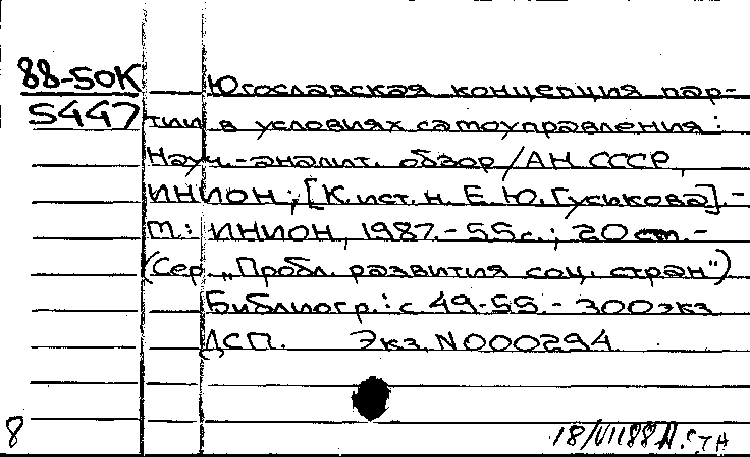 88-50К
5447
Югославская концепция пар-
тии в условиях самоуправления:
Науч.-аналит. обзор / АН СССР,
ИНИОН; [К. ист. н. Е. Ю. Гуськова]. -
М.: ИНИОН, 1987. - 55 с.; 20 см. -
(Сер. „Пробл. развития соц. стран")
Библиогр.: с. 49-55. - 300 экз.
ДСП. Экз. N000294
8
18/VII 88